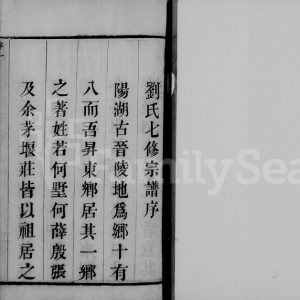 劉氏七修宗譜序
陽湖古晉陵地爲鄉十有
八而吾昇東鄉居其一鄉
之著姓若何墅何薛殷張
及余茅堰莊皆以祖居之
FamilySea